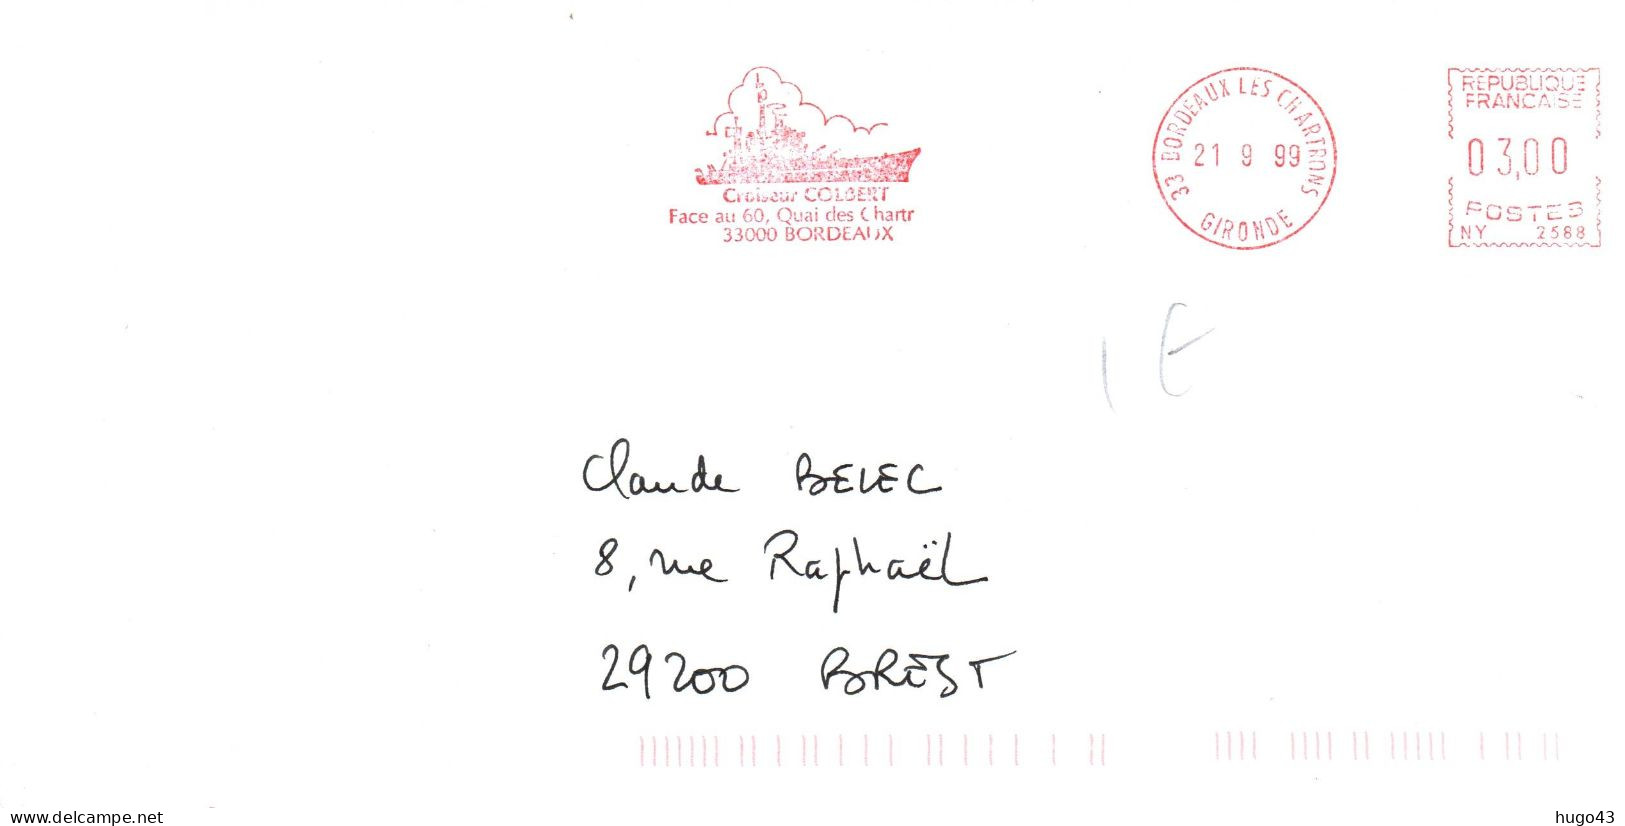 Croiseur COLBERT
Face au 60, Quai des Chartr
33000 BORDEAUX
33 BORDEAUX LES CHARTRONS
21 9 99
GIRONDE
REPUBLIQUE
FRANCAISE
03,00
POSTES
NY 2588
1 E
Claude BELEC
8, rue Raphaël
29200 BREST
www.delcampe.net
hugo43